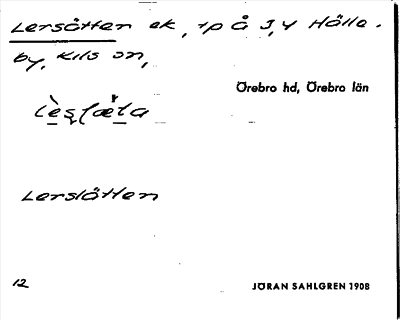 Lersåtten ek, tp å 3,4 Hölle-
by, Kils sn,
Örebro hd, Örebro län
Lerslåtten
12
JÖRAN SAHLGREN 1908